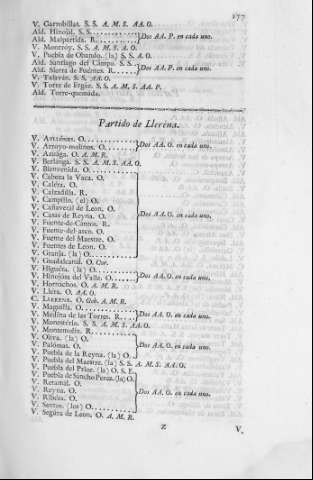 177
V. Garrobillas. S. S. A. M. S. AA. O.
Ald. Hinojal. S. S.
Ald. Malpartida. R. Dos AA. P. en cada uno.
V. Monroy. S. S. A. M. S. A. O.
V. Puebla de Obando. (la) S. S. A. O.
Ald. Santiago del Campo. S. S.
Ald. Sierra de Fuentes. R. Dos AA. P. en cada uno.
V. Talaván. S. S. AA. O.
V. Torre de Ergue. S. S. A. M. S. AA. P.
Ald. Torre-quemada.
Partido de Llerena.
V. O.
V. Arroyo-molinos. O. Dos AA. O. en cada uno.
V. Azuága. O. A. M. R.
V. Berlánga. S. S. A. M. S. AA. O.
V. Bienvenida. O.
V. Cabeza la Vaca. O.
V. Caléra. O.
V. Calzadilla. R.
V. Campillo. (el) O.
V. Cañaveral de Leon. O.
V. Casas de Reyna. O. Dos AA. O. en cada uno.
V. Fuente-de-Cantos. R.
V. Fuente-del-arco. O.
V. Fuente del Maestre. O.
V. Fuentes de Leon. O.
V. Granja. (la) O.
V. Guadalcanal. O.
V. Higuéra. (la) O.
V. Hinojósa del Valle. O. Dos AA. O. en cada uno.
V. Hornachos. O. A. M. R.
V. Lléra. O. AA. O.
C. LLERENA. O. Gob. A. M. R.
V. Maguilla. O.
V. Medína de las Torres. R. Dos AA. O. en cada uno.
V. Monesterio. S. S. A. M. S. AA. O.
V. Montemolin. R.
V. Oliva. (la) O.
V. Palómas. O. Dos AA. O. en cada uno.
V. Puebla de la Reyna. (la) O.
V. Puebla del Maestre. (la) S. S. A. M. S. AA. O.
V. Puebla del Prior. (la) O. S. E.
V. Puebla de Sancho Perez. (la) O.
V. Retamál. O.
V. Reyna. O. Dos AA. O. en cada uno.
V. Ribéra. O.
V. Santos. (los) O.
V. Segúra de Leon. O. A. M. R.
Z
V.